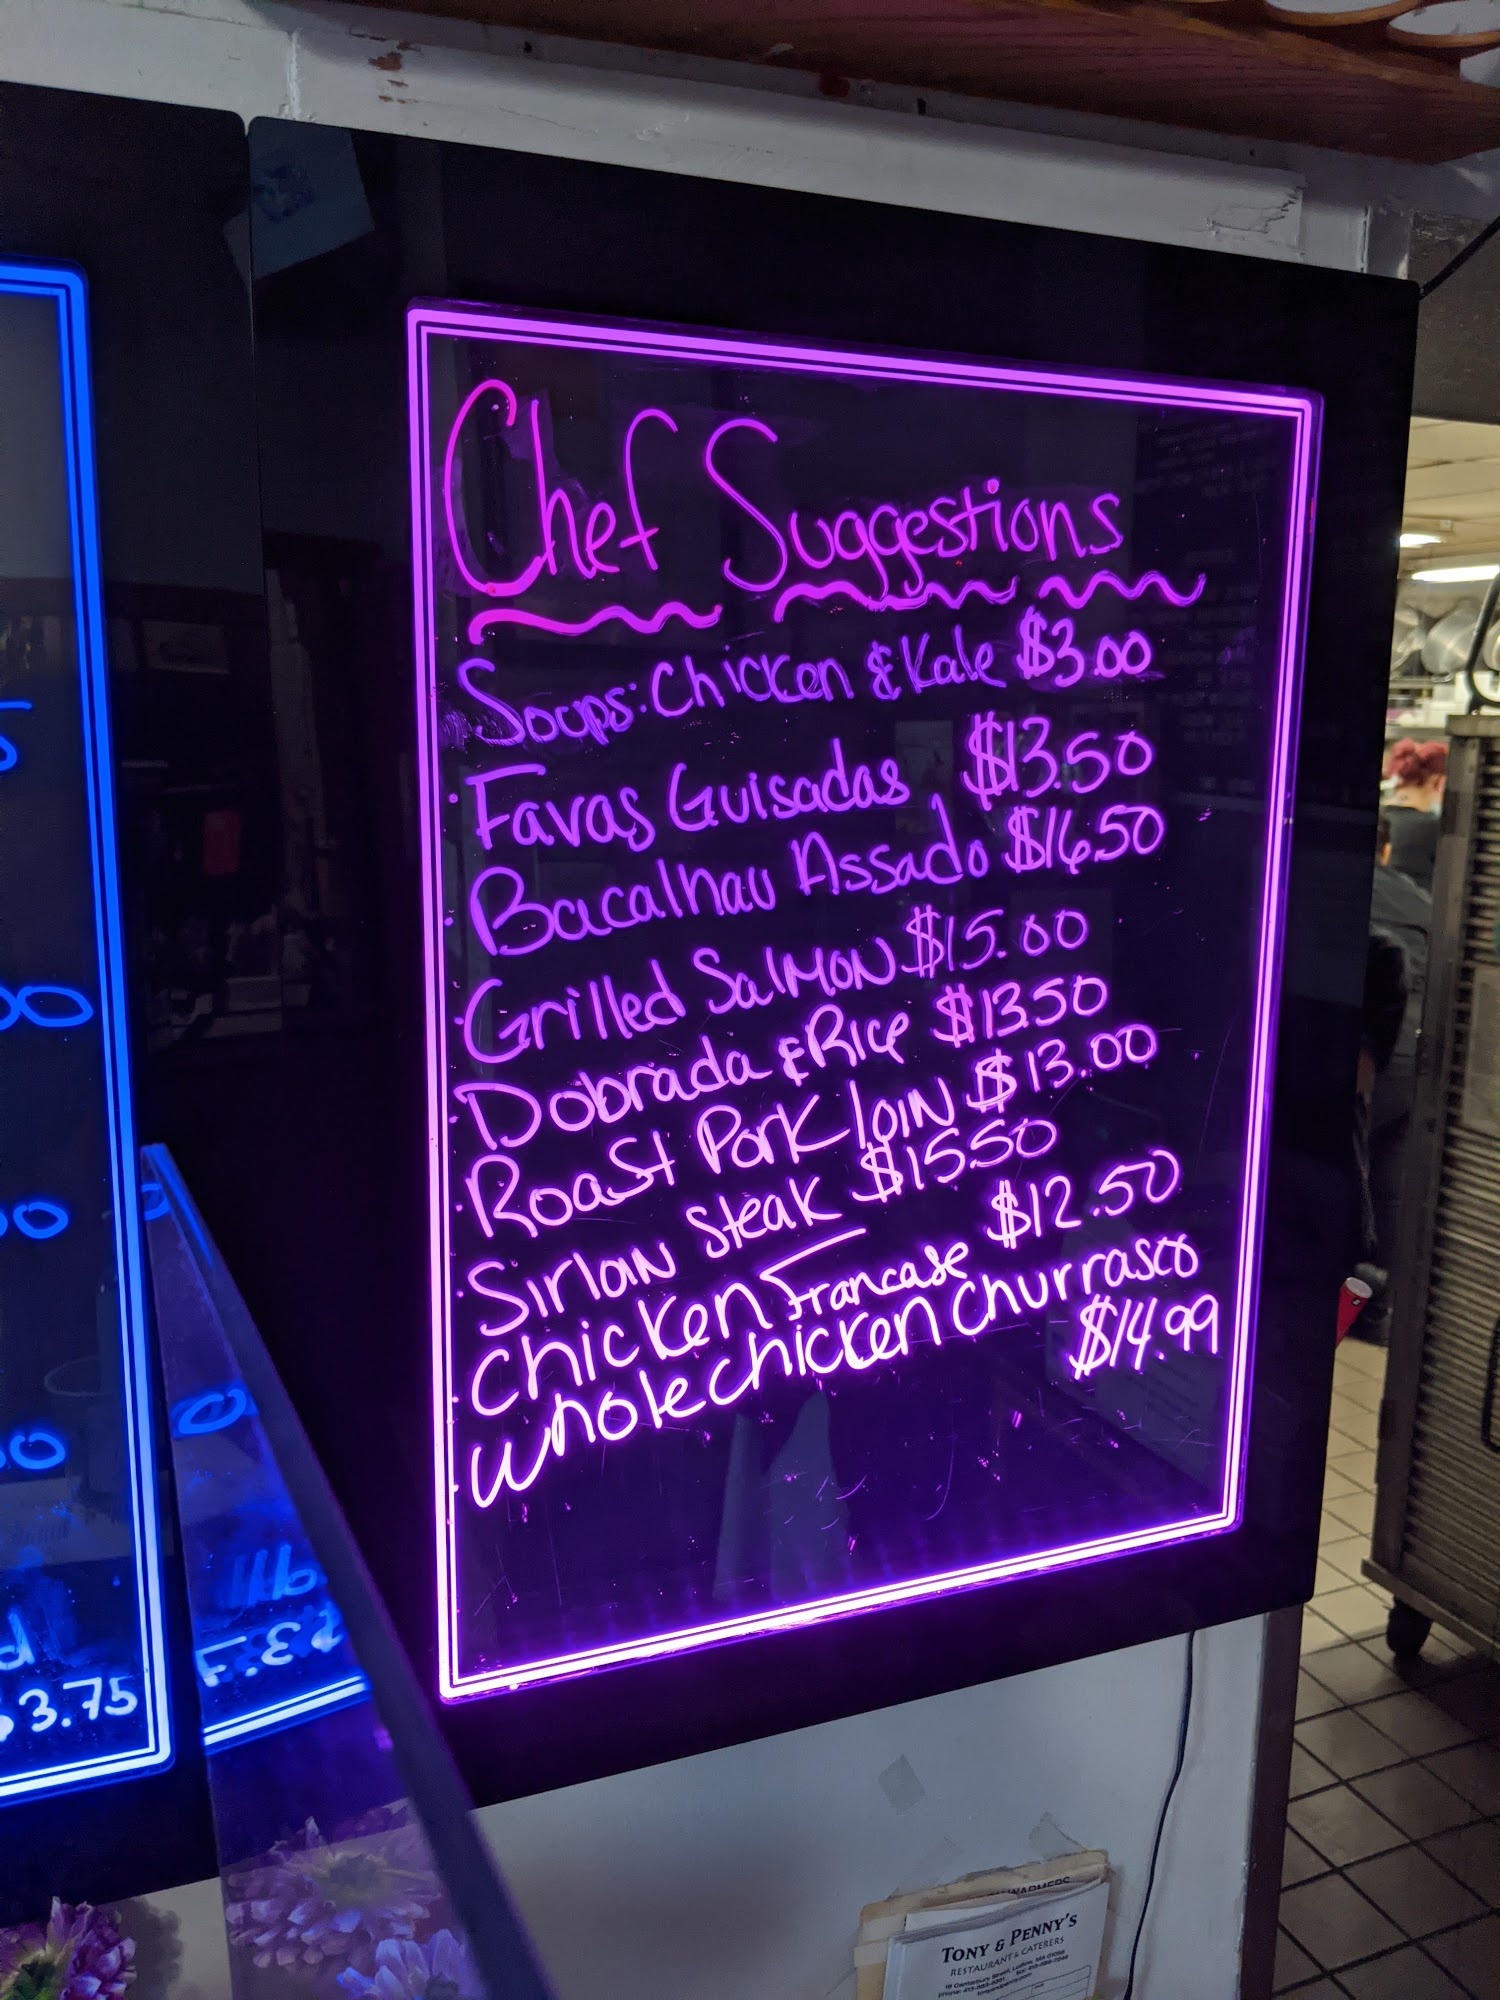 Chef Suggestions
Soups: Chicken & Kale $3.00
Favas Guisadas $13.50
Bacalhau Assado $16.50
Grilled Salmon $15.00
Dobrada & Rice $13.50
Roast Pork loin $13.00
Sirloin Steak $15.50
Chicken Francase $12.50
Whole chicken Churrasco
$14.99
$3.75
WARMERS
TONY & PENNY'S
RESTAURANT & CATERERS